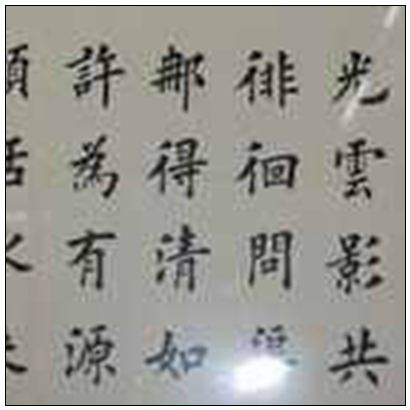 光雲影共
徘徊問
那得清如
許為有源